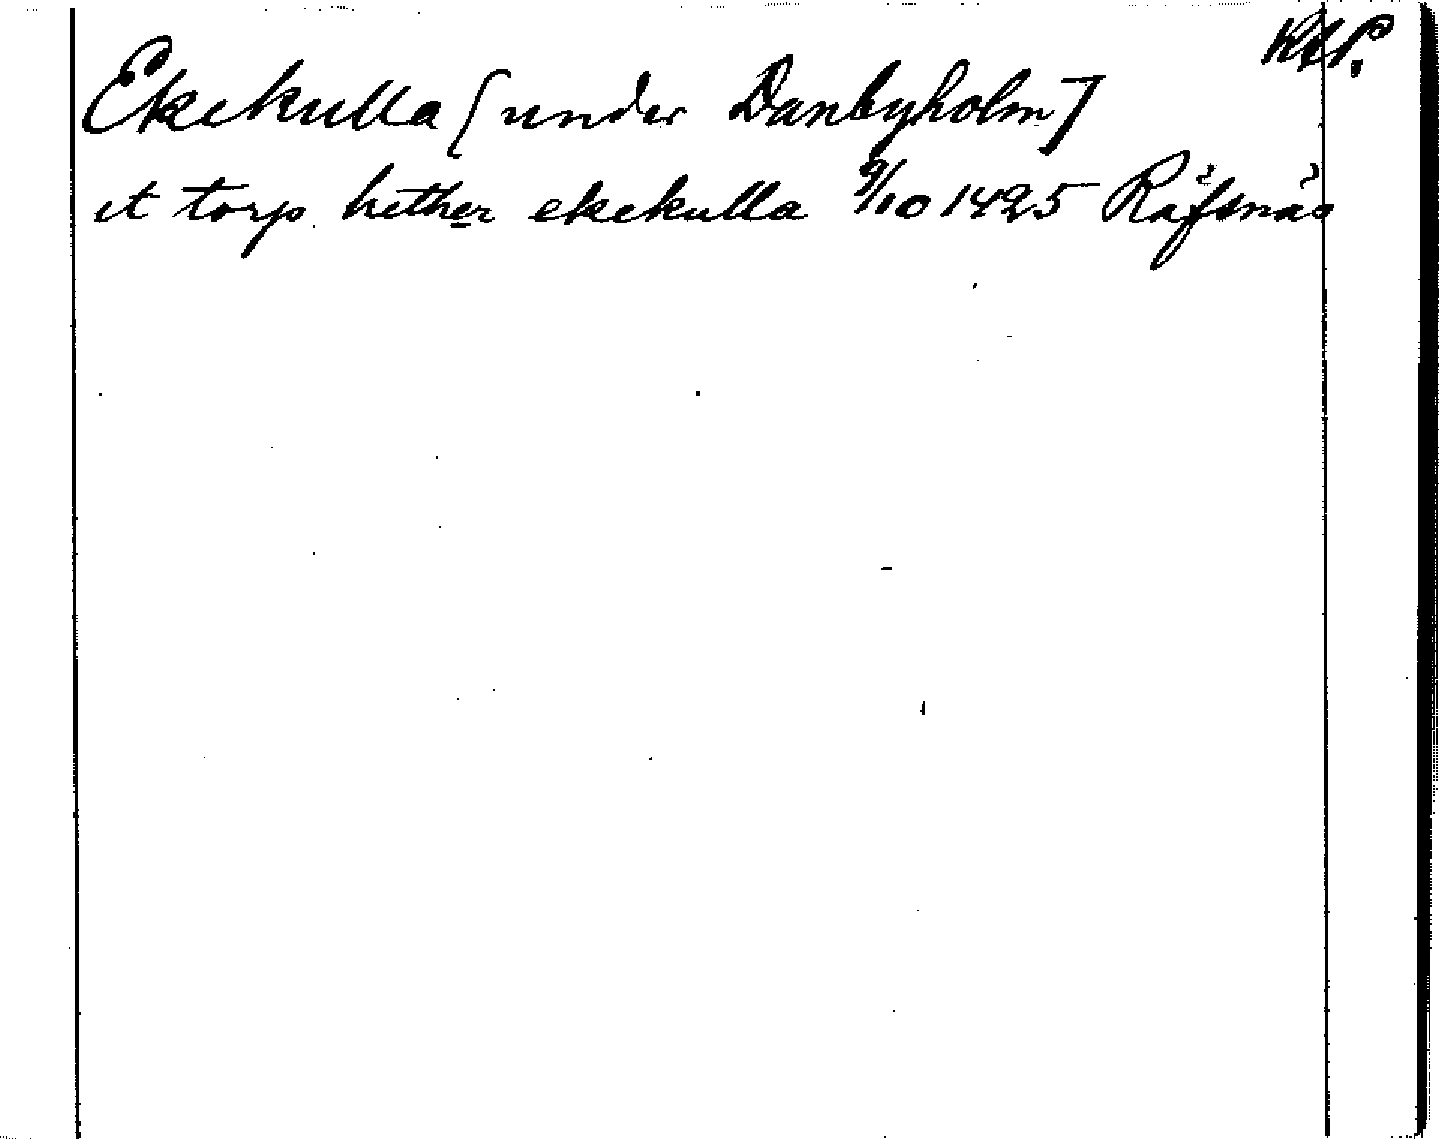 RAP.
Ekekulla [under Danbyholm]
et torp hether ekekulla 9/10 1425 Räfsnäs